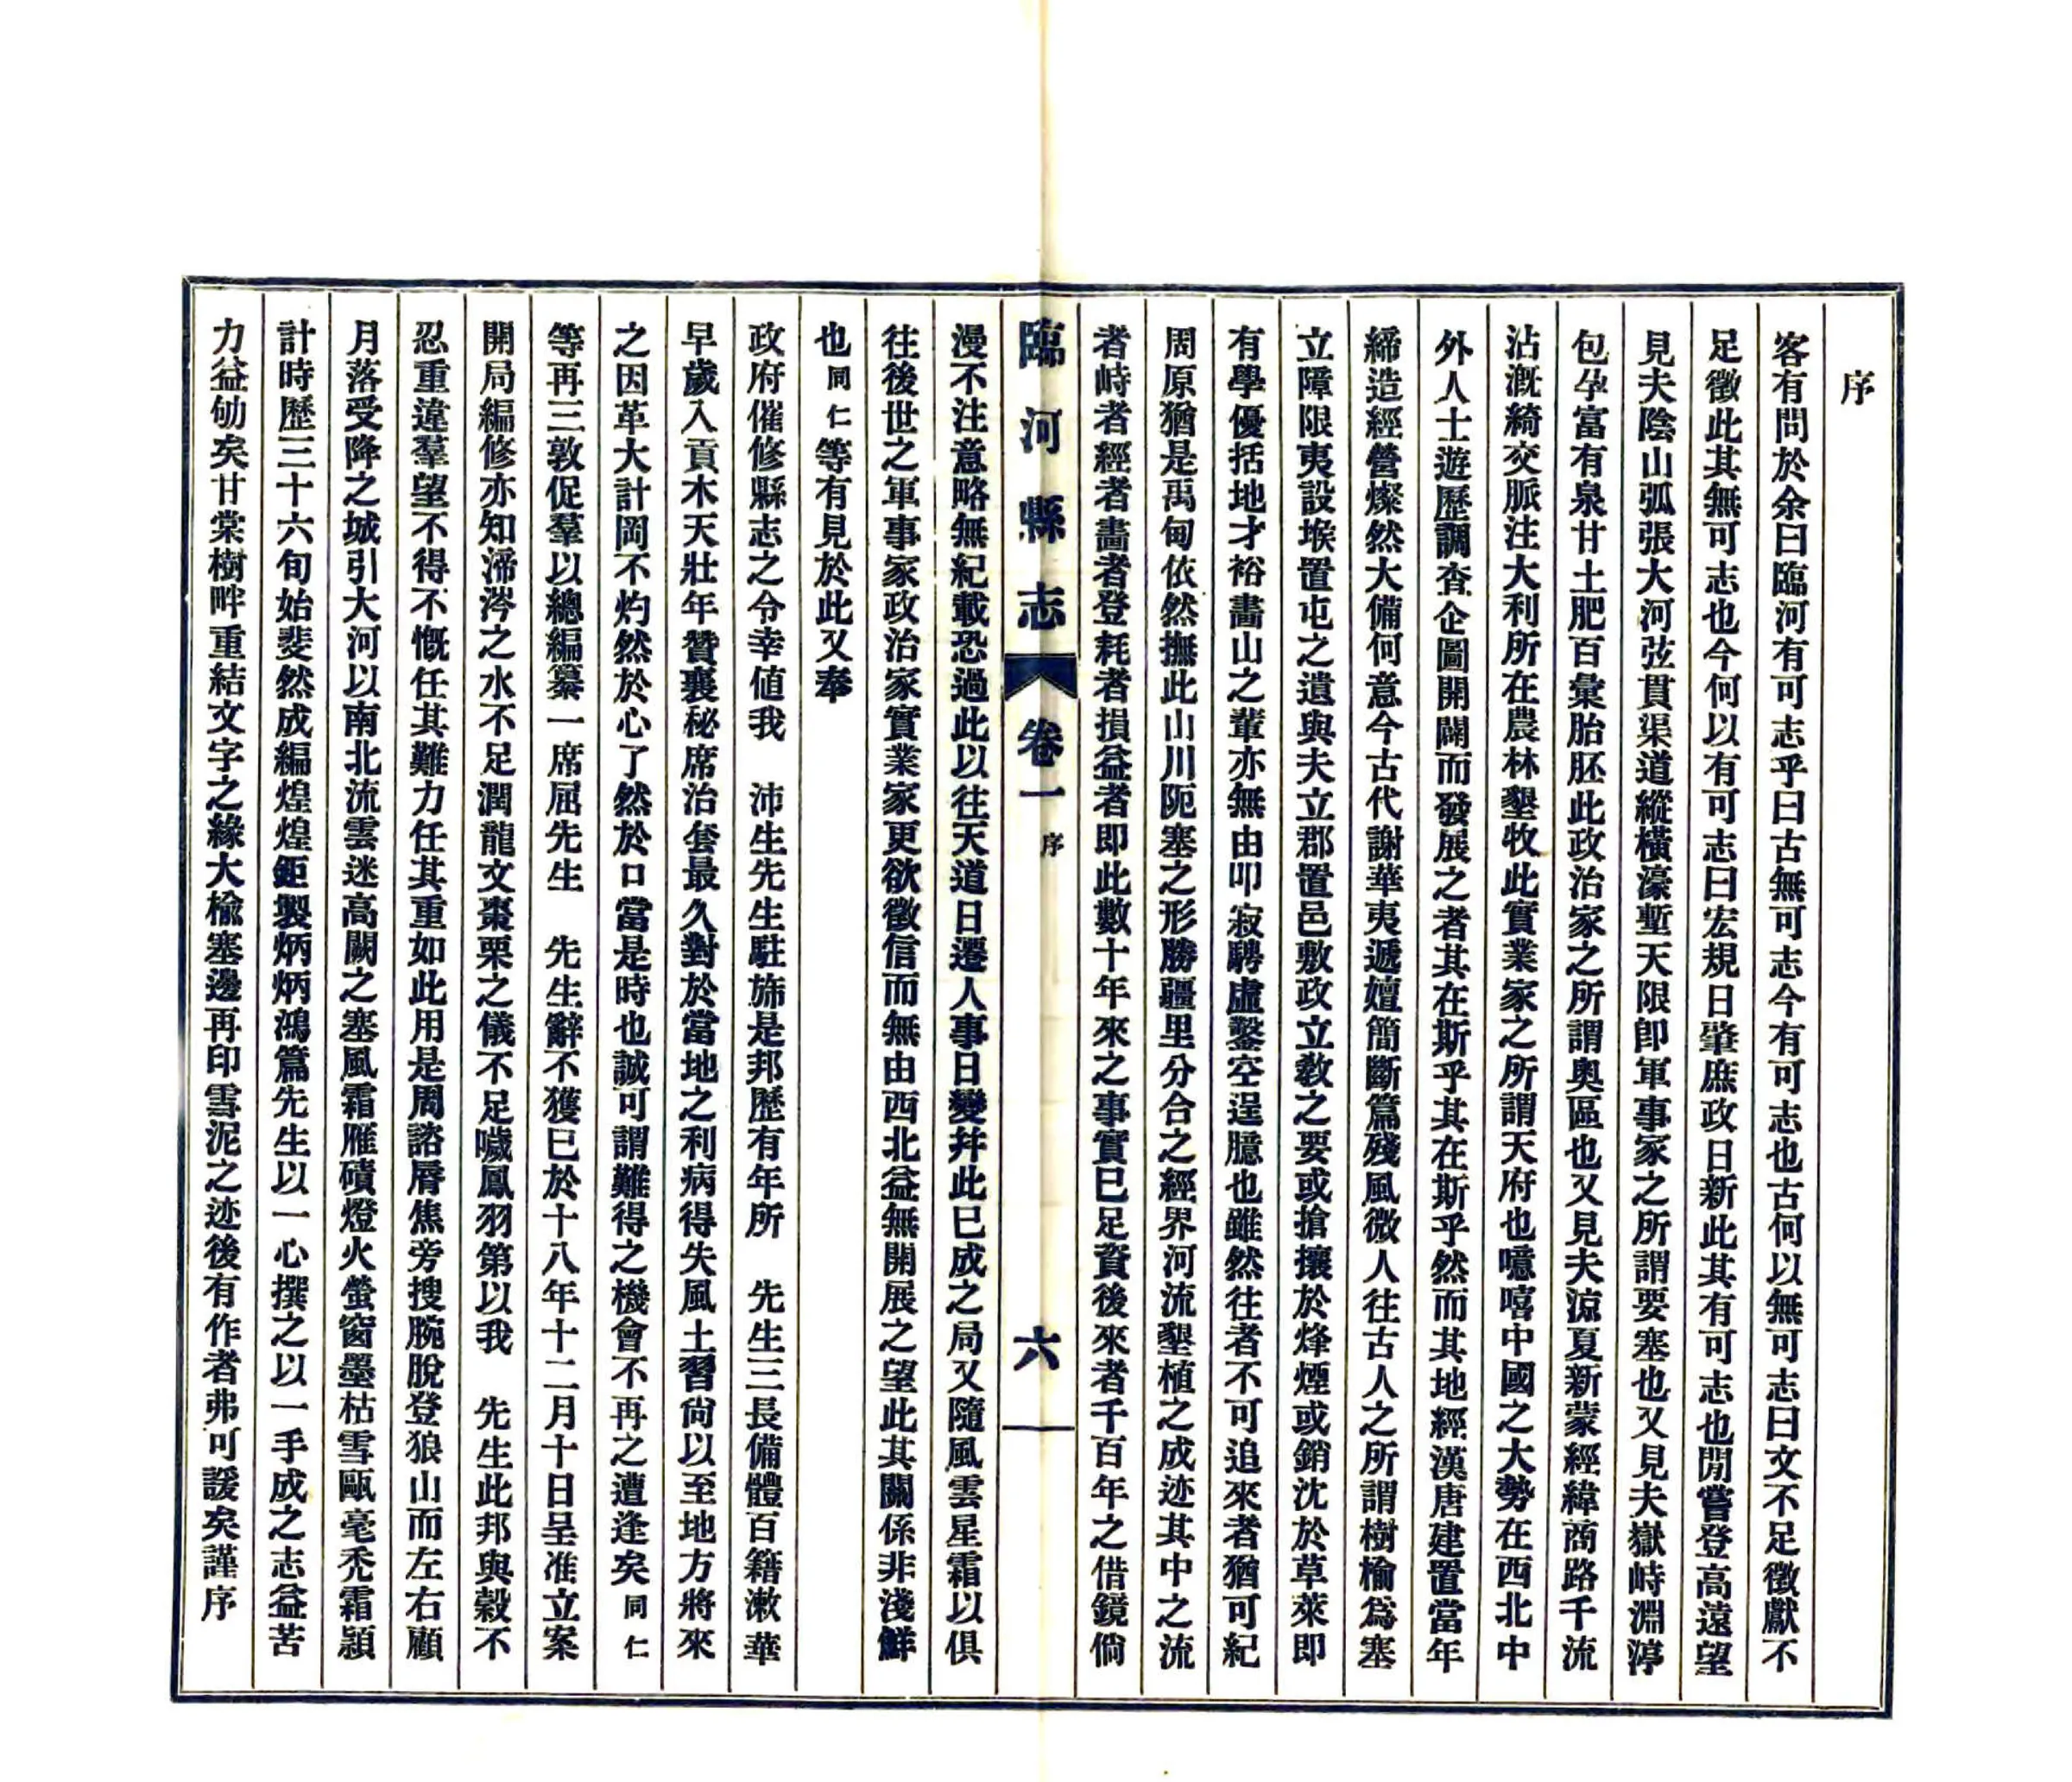 序
客有問於余曰臨河有可志乎曰古無可志今有可志也古何以無可志曰文不足徵獻不
足徵此其無可志也今何以有可志曰宏規日肇庶政日新此其有可志也閒嘗登高遠望
見夫陰山弧張大河弦貫渠道縱橫濠塹天限卽軍事家之所謂要塞也又見夫嶽峙淵渟
包孕富有泉甘土肥百彙胎胚此政治家之所謂奧區也又見夫涼夏新蒙經緯商路千流
沾漑綺交脈注大利所在農林墾牧此實業家之所謂天府也噫嘻中國之大勢在西北中
外人士遊歷調查企圖開闢而發展之者其在斯乎其在斯乎然而其地經漢唐建置當年
締造經營燦然大備何意今古代謝華夷遞嬗簡斷篇殘風微人往古人之所謂樹榆爲塞
立障限夷設堠置屯之遺與夫立郡置邑敷政立敎之要或搶攘於烽煙或銷沈於草萊即
有學優括地才裕畫山之輩亦無由叩寂騁虛鑿空逞臆也雖然往者不可追來者猶可紀
周原猶是禹甸依然撫此山川阨塞之形勝疆里分合之經界河流墾植之成迹其中之流
者峙者經者畫者登耗者損益者即此數十年來之事實已足資後來者千百年之借鏡倘
臨河縣志 卷一 序 六
漫不注意略無紀載恐過此以往天道日遷人事日變幷此已成之局又隨風雲星霜以俱
往後世之軍事家政治家實業家更欲徵信而無由西北益無開展之望此其關係非淺鮮
也同仁等有見於此又奉
政府催修縣志之令幸値我 沛生先生駐旆是邦歷有年所 先生三長備體百籍漱華
早歲入貢木天壯年贊襄秘席治套最久對於當地之利病得失風土習尙以至地方將來
之因革大計罔不灼然於心了然於口當是時也誠可謂難得之機會不再之遭逢矣同仁
等再三敦促羣以總編纂一席屈先生 先生辭不獲已於十八年十二月十日呈准立案
開局編修亦知渧涔之水不足潤龍文棗栗之儀不足噦鳳羽第以我 先生此邦與穀不
忍重違羣望不得不慨任其難力任其重如此用是周諮脣焦旁搜腕脫登狼山而左右顧
月落受降之城引大河以南北流雲迷高闕之塞風霜雁磧燈火螢窗墨枯雪甌毫禿霜穎
計時歷三十六旬始斐然成編煌煌鉅製炳炳鴻篇先生以一心撰之以一手成之志益苦
力益劬矣甘棠樹畔重結文字之緣大楡塞邊再印雪泥之迹後有作者弗可諼矣謹序